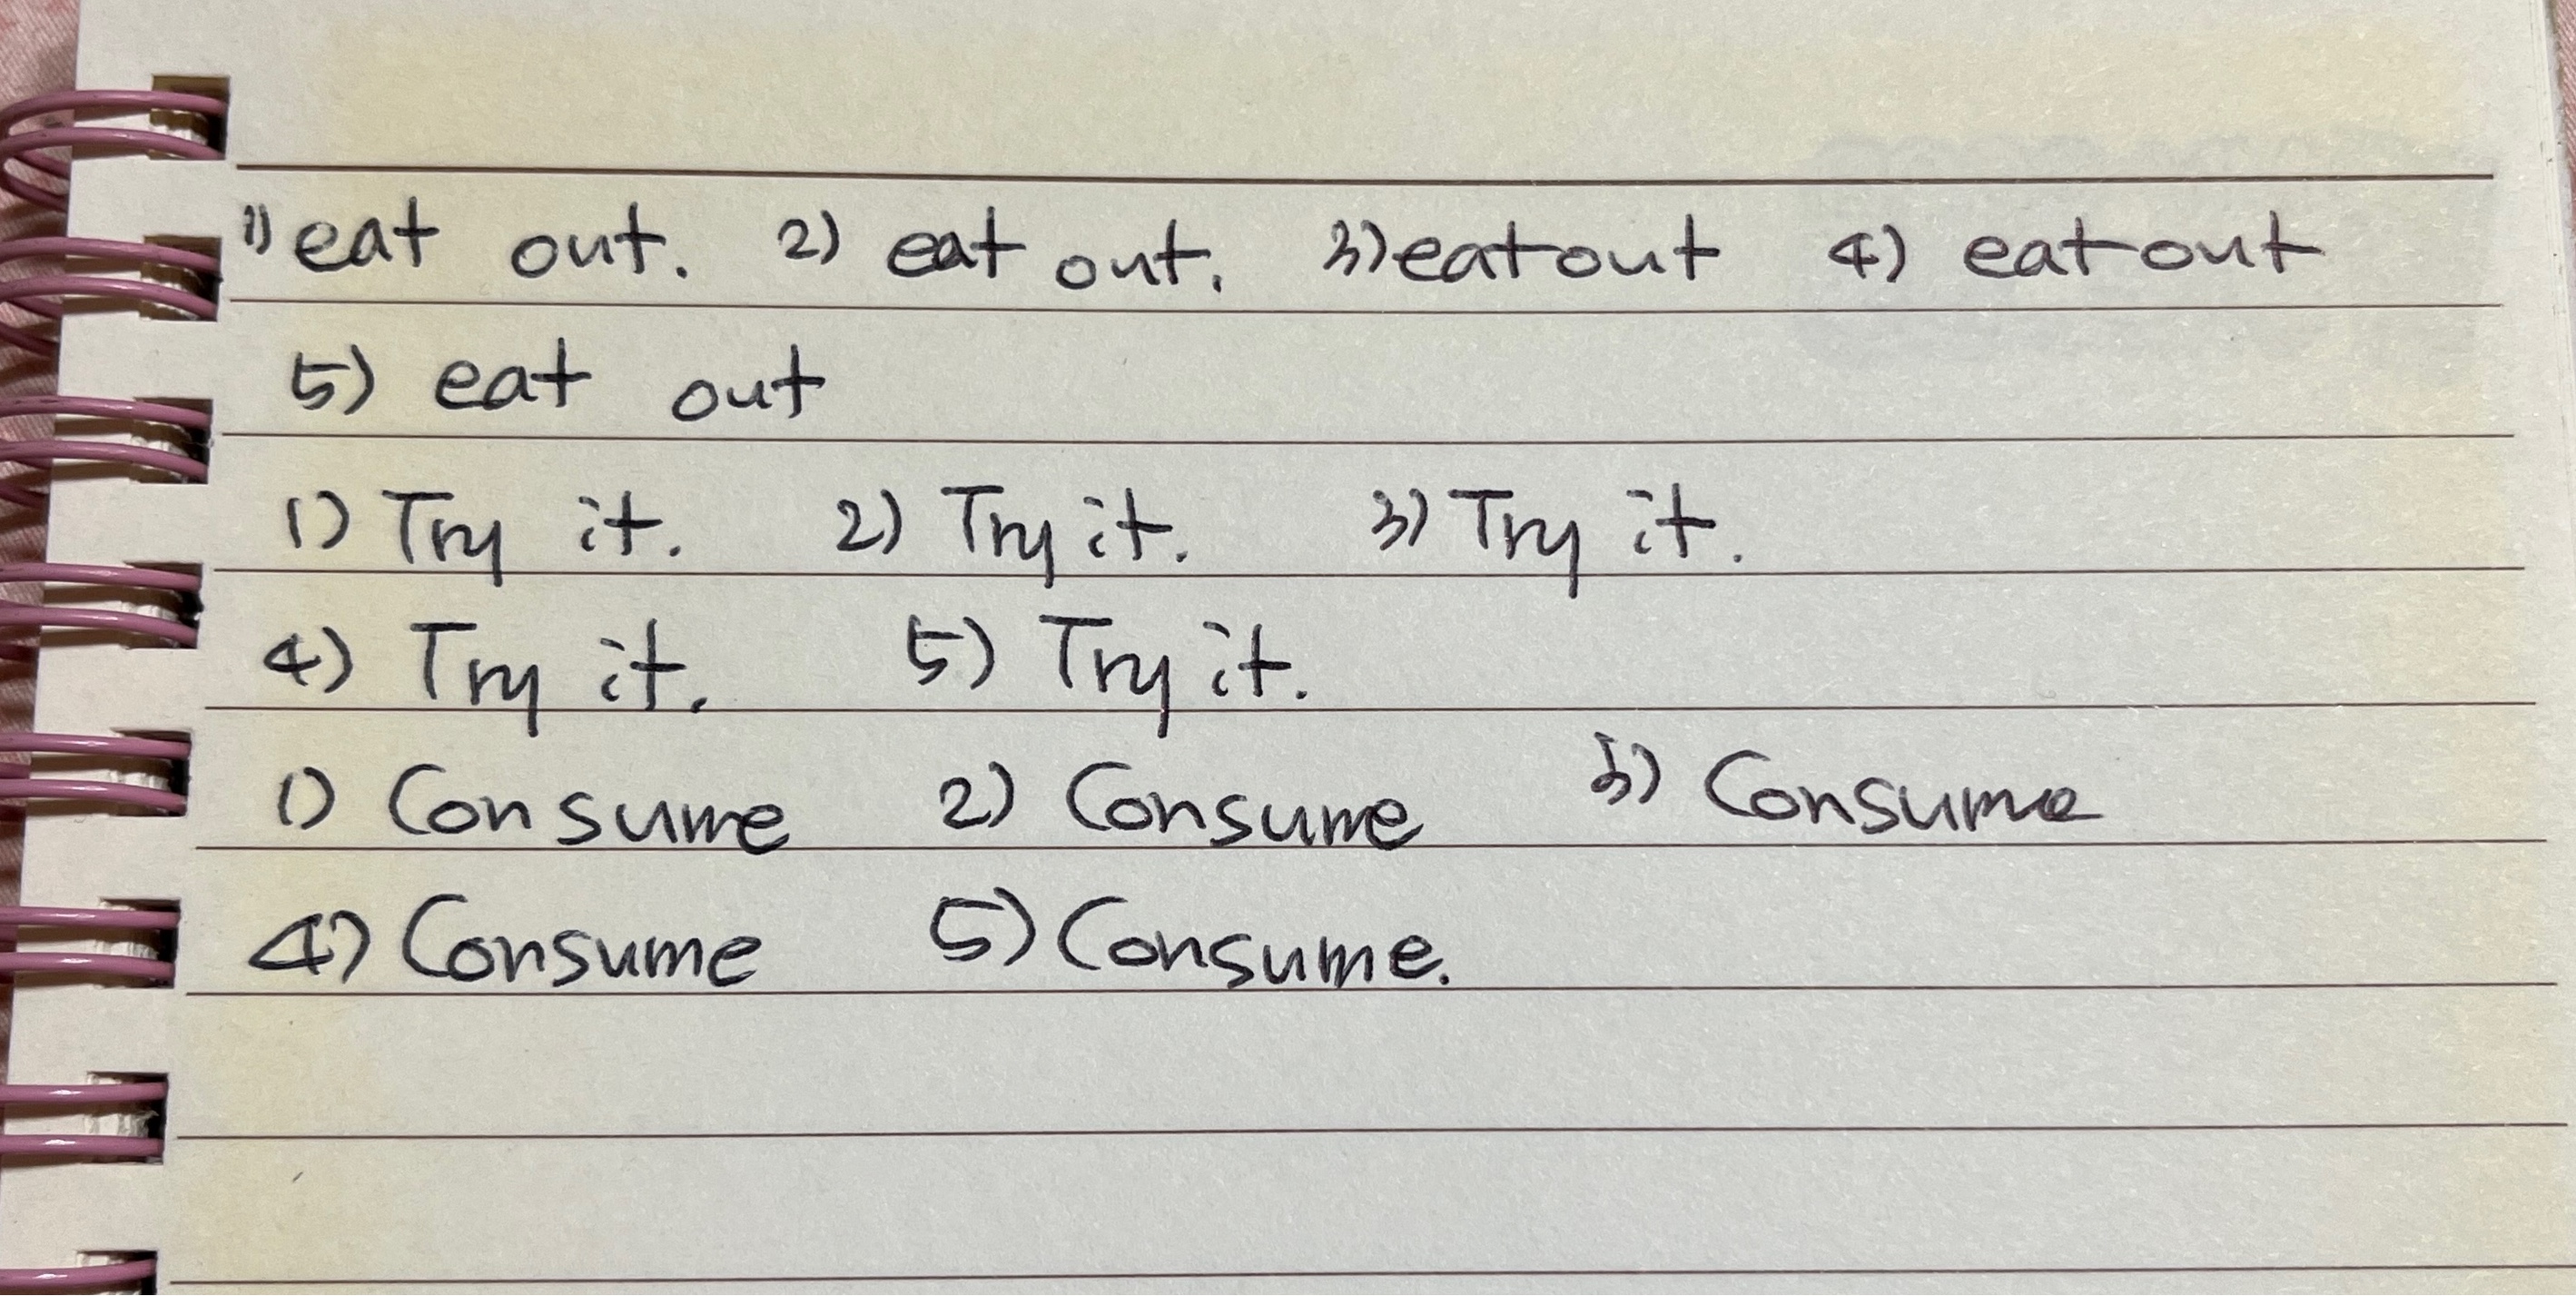 1) eat out. 2) eat out. 3) eat out 4) eat out
5) eat out
1) Try it. 2) Try it. 3) Try it.
4) Try it. 5) Try it.
1) Consume 2) Consume 3) Consume
4) Consume 5) Consume.